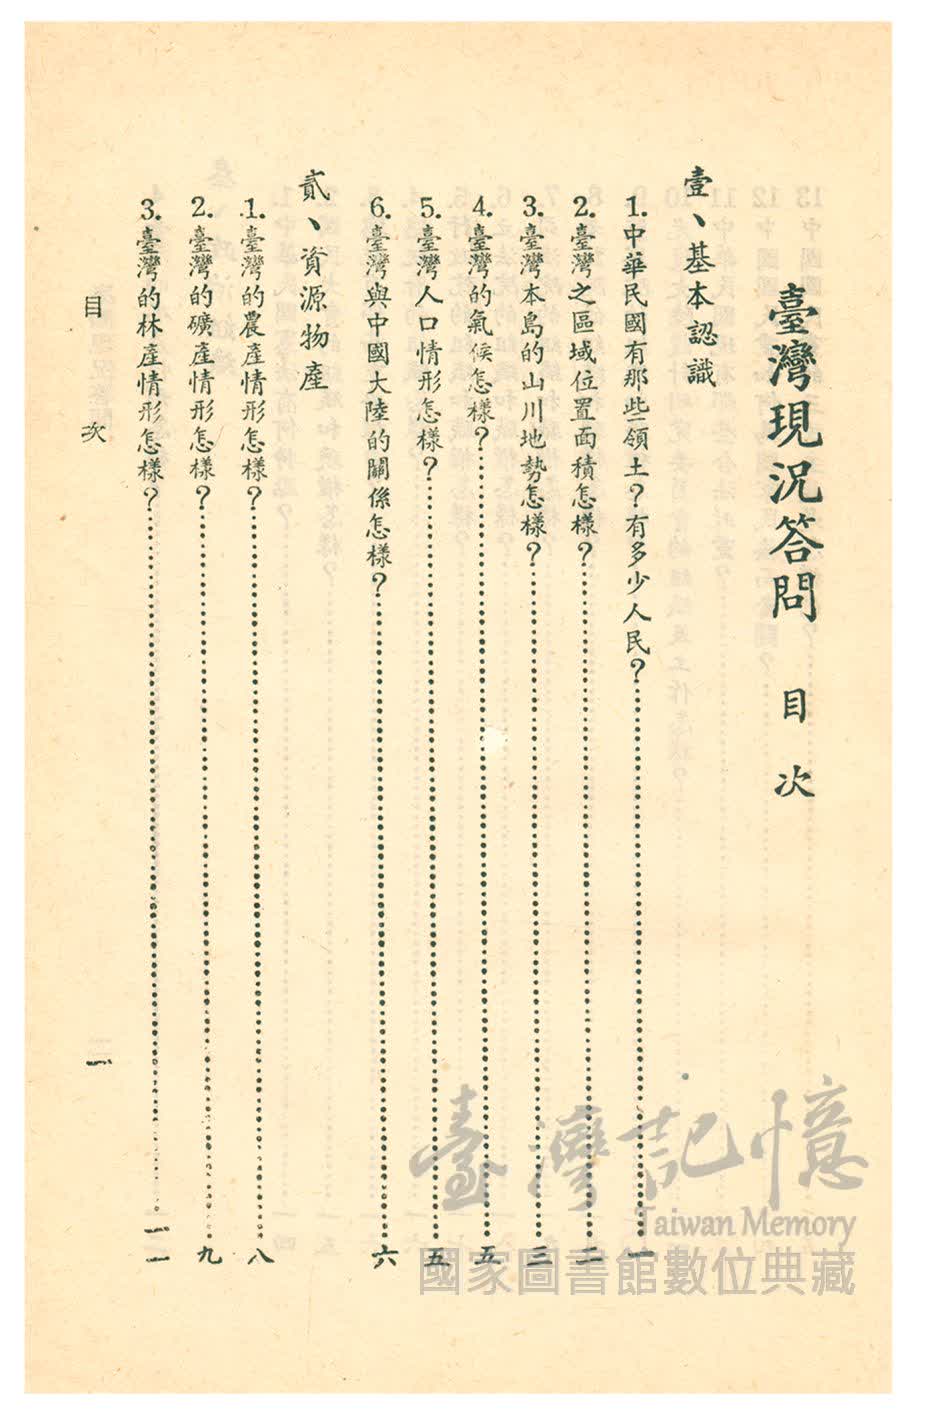 臺灣現況答問 目次
壹、基本認識
1.中華民國有那些領土?有多少人民?……一
2.臺灣之區域位置面積怎樣?……二
3.臺灣本島的山川地勢怎樣?……三
4.臺灣的氣候怎樣?……五
5.臺灣人口情形怎樣?……五
6.臺灣與中國大陸的關係怎樣?……六
貳、資源物產
1.臺灣的農產情形怎樣?……八
2.臺灣的礦產情形怎樣?……九
3.臺灣的林產情形怎樣?……一一
目次 一
臺灣記憶
Taiwan Memory
國家圖書館數位典藏